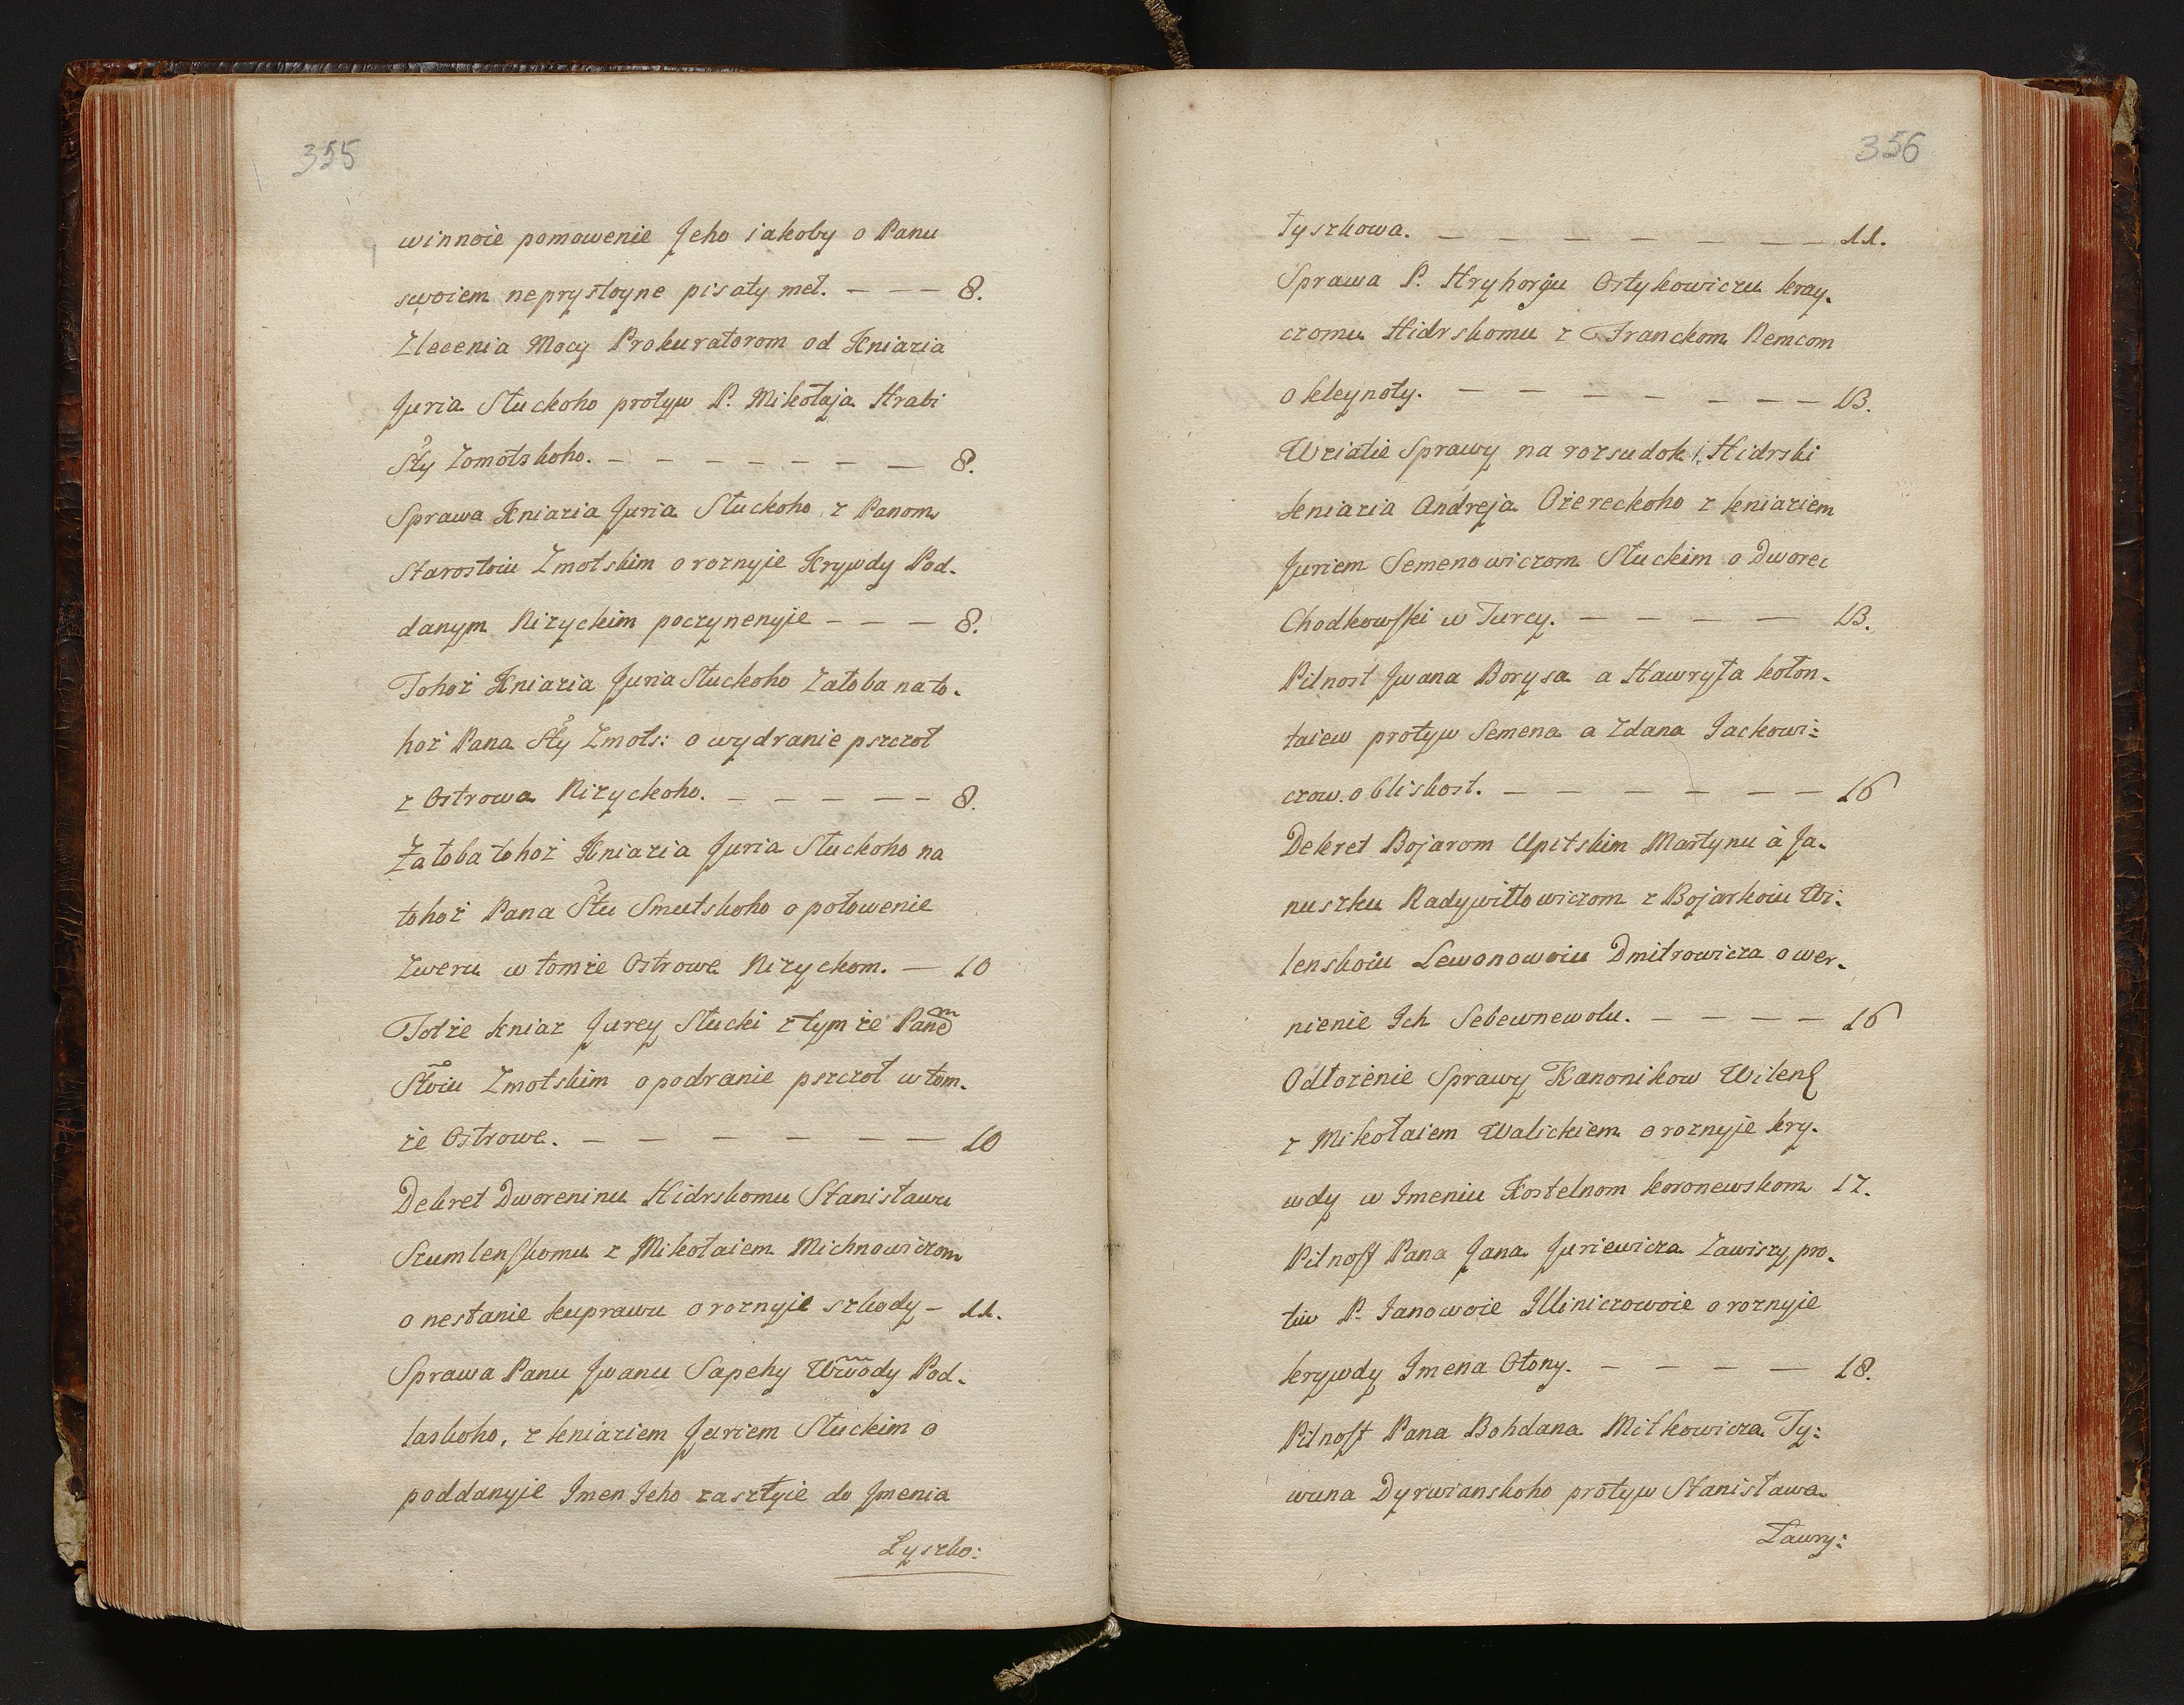 355
winnoie pomowenie Jeho iakoby o Panu
swoiem neprystoyne pisaty meł. – – – 8.
Zlecenia Mocy Prokuratorom od Kniazia
Juria Słuckoho protyw P. Mikołaja Hrabi
Sty Zomotskoho. – – – – – – – – 8.
Sprawa Kniazia Juria Słuckoho z Panom
Starostoiu Zmotskim o roznyie Krywdy Pod-
danym Nizyckim poczynenyie – – – 8.
Tohoż Kniazia Juria Słuckoho Załoba na to-
hoż Pana Sty Zmots: o wydranie pszczoł
z Ostrowa Nizyckoho. – – – – – – 8.
Załoba tohoż Kniazia Juria Słuckoho na
tohoż Pana Stu Smutskoho o połowenie
Zweru w tomże Ostrowe Nizyckom. – 10
Totże kniaz Jurey Słucki z tym że Panem
Stoiu Zmotskim o podranie pszczoł w tom-
że Ostrowe. – – – – – – – 10
Dekret Dworeninu Hidrskomu Stanisławu
Szumlenskomu z Mikołaiem Michnowiczom
o nestanie kuprawu o roznyie szkody – 11.
Sprawa Panu Jwanu Sapehy Wwody Pod-
laskoho, z kniaziem Juriem Słuckim o
poddanyie Imen Jeho zaszłyie do Jmenia
Łyszko:
356
Łyszkowa. – – – – – – – – 11.
Sprawa P. Hryhorju Ostykowiczu kray-
czomu Hidrskomu z Franckom Nemcom
o kleynoty. – – – – – – – 13.
Wziatie Sprawy na rozsudok Hidrski
kniazia Andreja Ożereckoho z kniaziem
Juriem Semenowiczom Słuckim o Dworec
Chodkowski w Turcy. – – – – 13.
Pilnost Jwana Borysa a Hawryła kołon-
taiew protyw Semena a Zdana Jackowi:
czow. o bliskost. – – – – – – 16
Dekret Bojarom Upitskim Martynu à Ja-
nuszku Radywiłłowiczom z Bojarkoiu Wi:
lenskoiu Lewonowoiu Dmitrowicza o wer-
nienie Ich Sebewnewolu. – – – – 16
Odłożenie Sprawy Kanonikow Wilens
z Mikołaiem Walickiem o roznyie kry-
wdy w Imeniu Kostelnom koronewskom 17.
Pilnost Pana Jana Juriewicza Zawiszy pro-
tiw P. Janowoie Illiniczowoie o roznyie
krywdy Imena Ołony. – – – – 18.
Pilnost Pana Bohdana Mitkowicza Ty:
wuna Dyrwianskoho protyw Stanisława
Ławry: